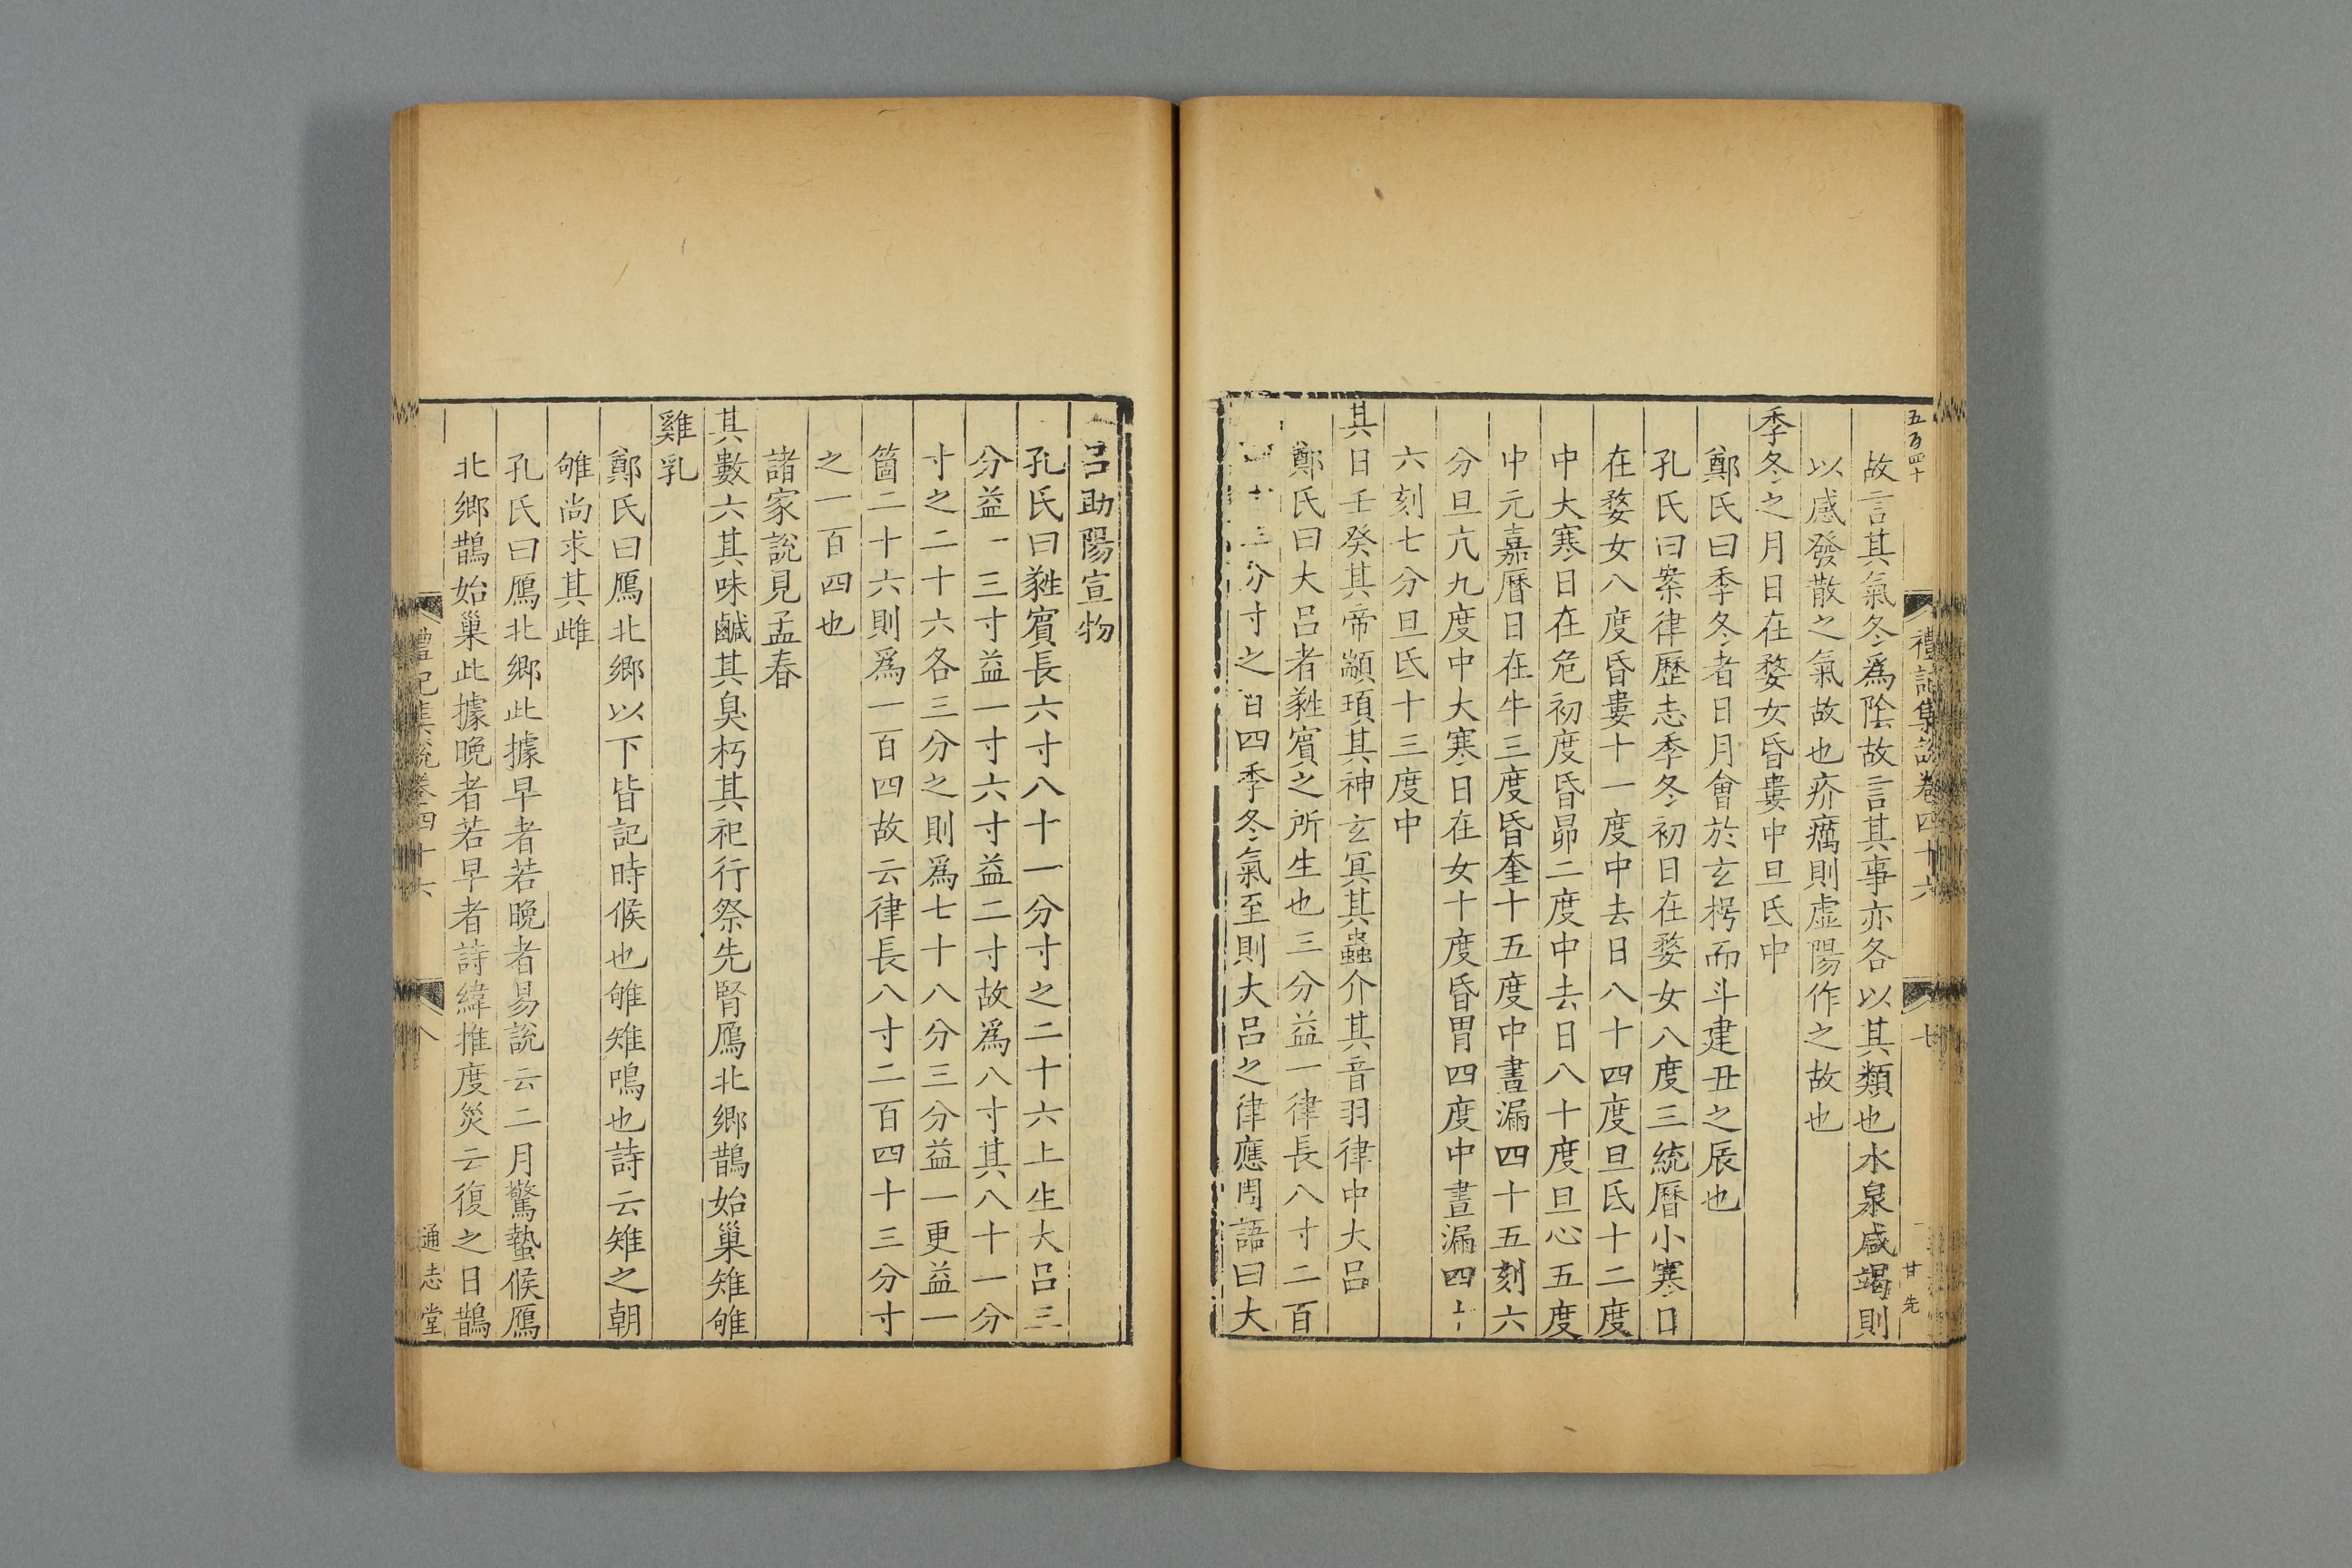 五百四十
禮記集說卷四十六
七
甘先
故言其氣冬爲陰故言其事亦各以其類也水泉咸竭則
以感發散之氣故也疥癘則虛陽作之故也
季冬之月日在婺女昏婁中旦氐中
鄭氏曰季冬者日月會於玄枵而斗建丑之辰也
孔氏曰案律歷志季冬初日在婺女八度三統曆小寒日
在婺女八度昏婁十一度中去日八十四度旦氐十二度
中大寒日在危初度昏昴二度中去日八十度旦心五度
中元嘉曆日在牛三度昏奎十五度中晝漏四十五刻六
分旦亢九度中大寒日在女十度昏胃四度中晝漏四十
六刻七分旦氐十三度中
其日壬癸其帝顓頊其神玄冥其蟲介其音羽律中大呂
鄭氏曰大呂者蕤賓之所生也三分益一律長八寸二百
十三分寸之百四季冬氣至則大呂之律應周語曰大
呂助陽宣物
孔氏曰蕤賓長六寸八十一分寸之二十六上生大呂三
分益一三寸益一寸六寸益二寸故爲八寸其八十一分
寸之二十六各三分之則爲七十八分三分益一更益一
箇二十六則爲一百四故云律長八寸二百四十三分寸
之一百四也
諸家說見孟春
其數六其味鹹其臭朽其祀行祭先腎鴈北鄉鵲始巢雉雊
雞乳
鄭氏曰鴈北鄉以下皆記時候也雊雉鳴也詩云雉之朝
雊尚求其雌
孔氏曰鴈北鄉此據早者若晚者易說云二月驚蟄候鴈
北鄉鵲始巢此據晚者若早者詩緯推度災云復之日鵲
禮記集說卷四十六
八
通志堂